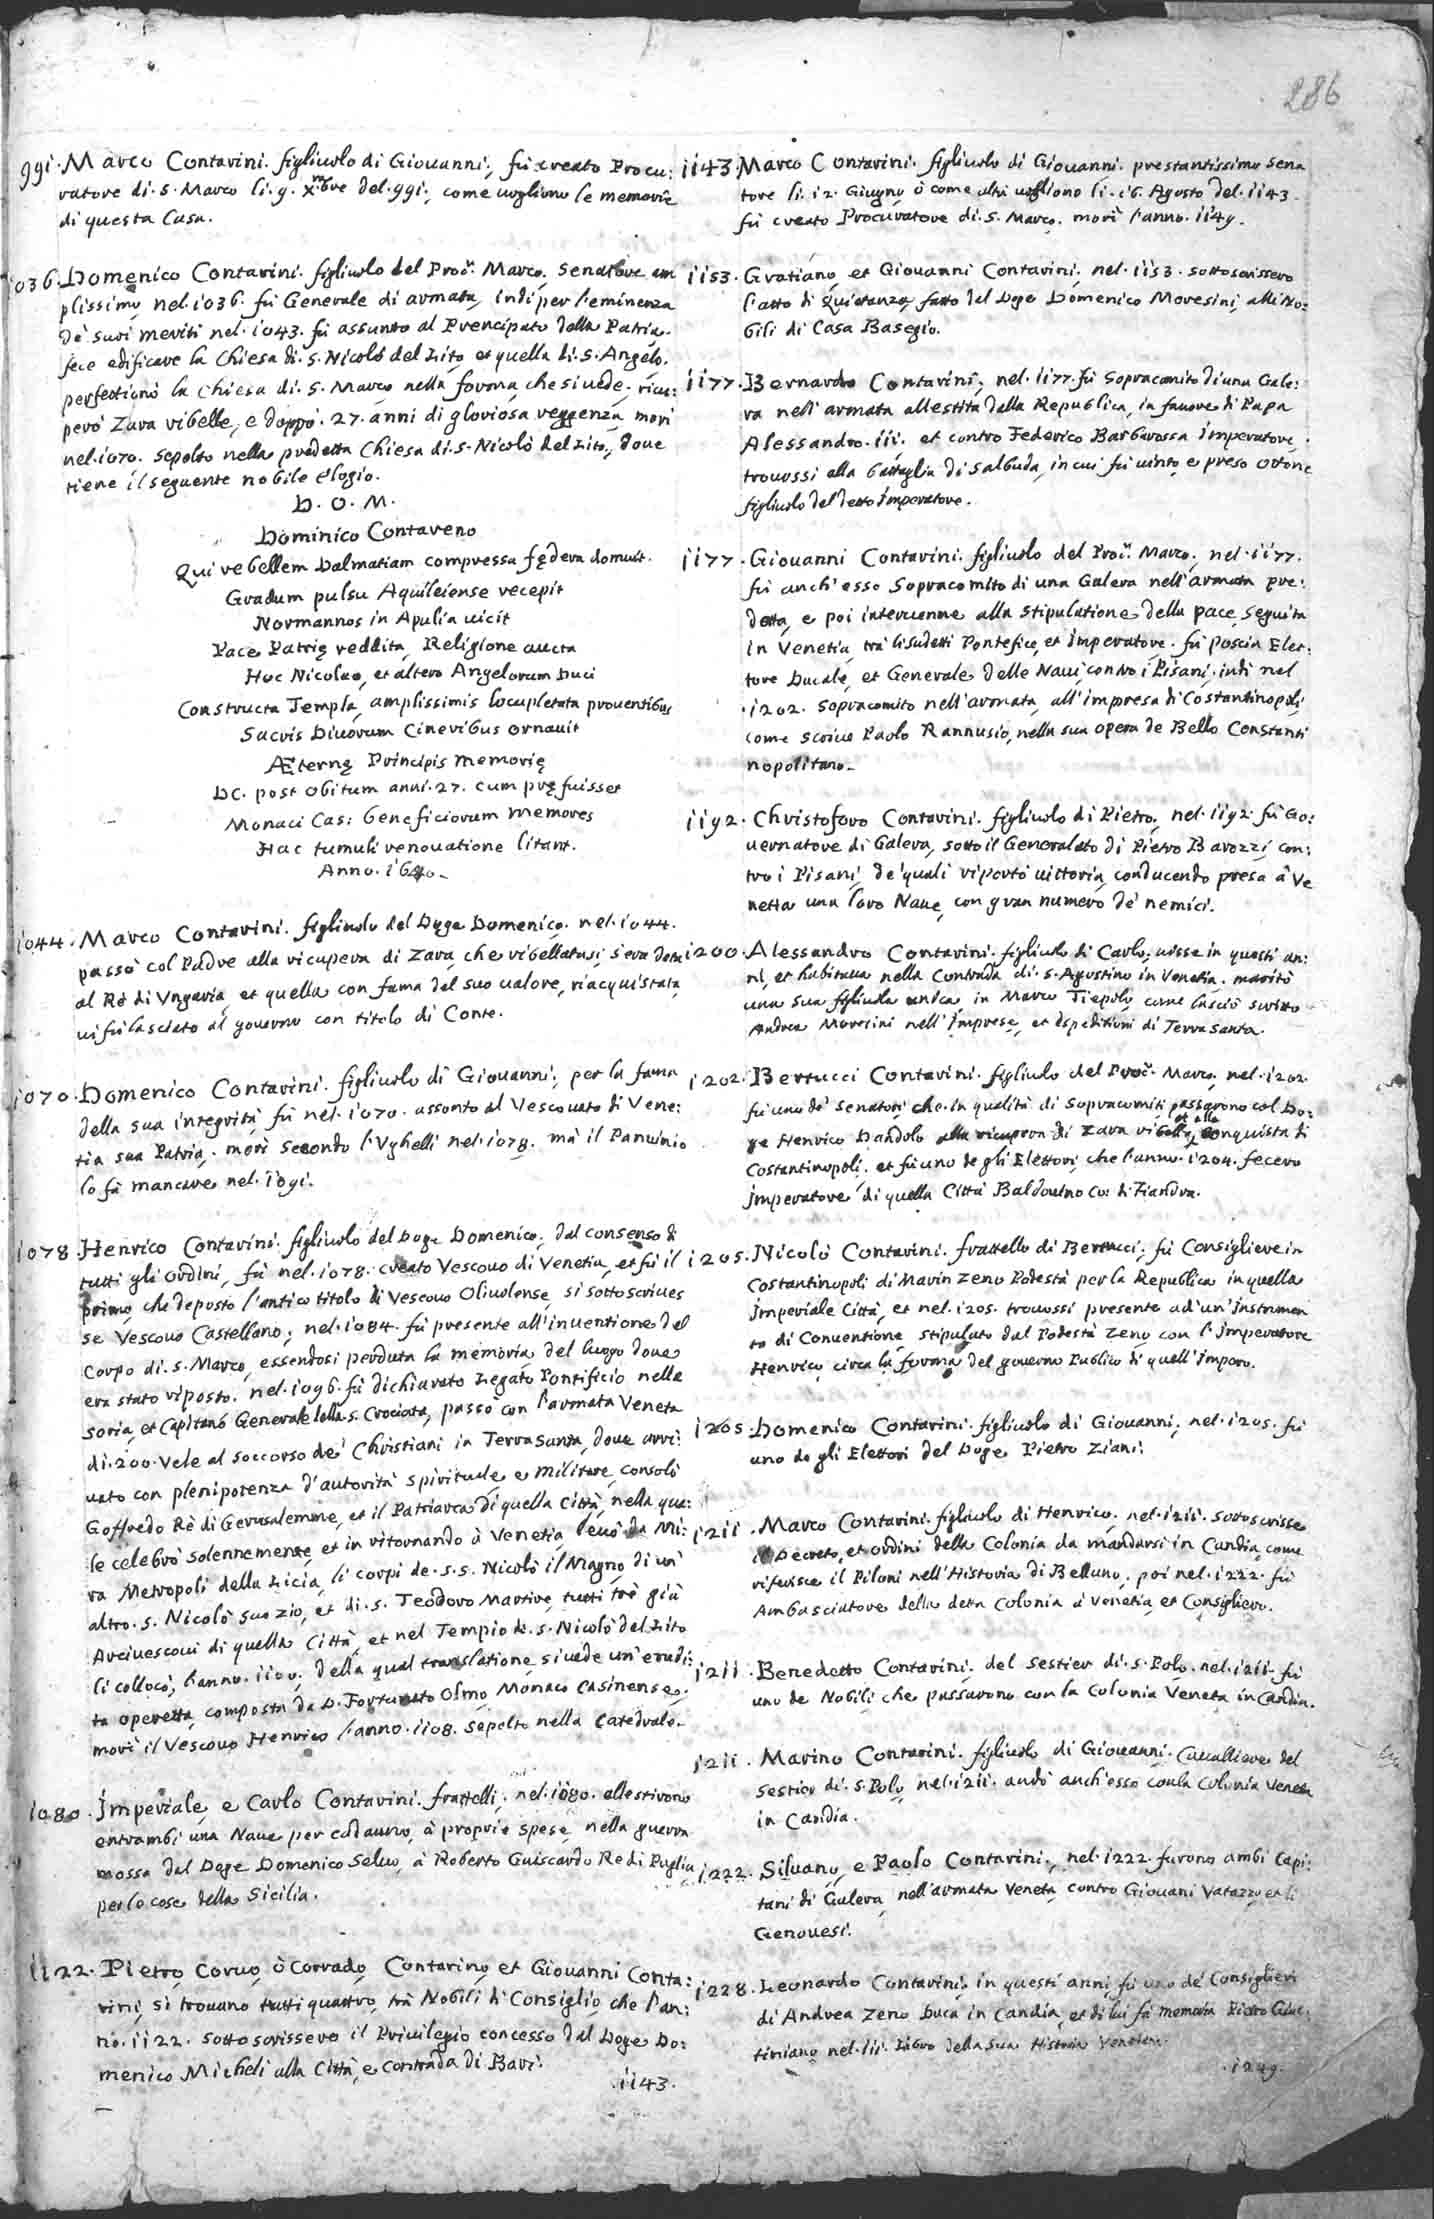 286
991. Marco Contarini. figliuolo di Giouanni, fù creato Procu:
ratore di. s. Marco li. 9. Xmbre del. 991. come uogliono le memorie
di questa Casa.
1036. Domenico Contarini. figliuolo del Procr. Marco. Senatore am
plissimo nel. 1036. fù Generale di armata, indi per l'eminenza
de suoi meriti nel. 1043. fù assunto al Prencipato della Patria.
fece edificare la Chiesa di. s. Nicolò del Lito et quella di. s. Angelo.
perfettionò la Chiesa di. s. Marco nella forma, che si uede. ricu:
però Zara ribelle, e doppò. 27. anni di gloriosa reggenza morì
nel. 1070. sepolto nella predetta Chiesa di. s. Nicolò del Lito, doue
tiene il seguente nobile elogio.
D. O. M.
Dominico Contareno
Qui rebellem Dalmatiam compressa fędera domuit.
Gradum pulsu Aquileiense recepit
Normannos in Apulia uicit
Pace Patrię reddita, Religione aucta
Hoc Nicolao, et altero Angelorum Duci
Constructa Templa, amplissimis locupletata prouentibus
Sacris Diuorum Cineribus ornauit
Æternę Principis memorię
DC. post obitum anni. 27. cum pręfuisset
Monaci Cas: beneficiorum memores
Hac tumuli renouatione litant.
Anno. 1640.
1044. Marco Contarini. figliuolo del Doge Domenico. nel. 1044.
passò col Padre alla ricupera di Zara, che ribellatasi s'era data
al Rè di Vngaria, et quella con fama del suo ualore, riacquistata,
ui fù lasciato al gouerno con titolo di Conte.
1070. Domenico Contarini. figliuolo di Giouanni, per la fama
della sua integrità fù nel. 1070. assonto al Vescouato di Vene:
tia sua Patria. morì secondo l'Vghelli nel. 1078. mà il Panuinio
lo fà mancare nel. 1091.
1078. Henrico Contarini. figliuolo del Doge Domenico, dal consenso di
tutti gli ordini, fù nel. 1078. creato Vescouo di Venetia, et fù il
primo, che deposto l'antico titolo di Vescouo Oliuolense, si sottoscriues
se Vescouo Castellano, nel. 1084. fù presente all'inuentione del
Corpo di. s. Marco, essendosi perduta la memoria del luogo doue
era stato riposto. nel. 1096. fù dichiarato Legato Pontificio nella
Soria, et Capitano Generale della s. Crociata, passò con l'armata Veneta
di. 200. Vele al soccorso de' Christiani in Terra Santa, doue arri:
uato con plenipotenza d'autorità spirituale e militare, consolò
Goffredo Rè di Gerusalemme, et il Patriarca di quella Città, nella qua:
le celebrò solennemente, et in ritornando à Venetia, leuò da Mi:
ra Metropoli della Licia, li corpi de. s.s. Nicolò il Magno, di un'
altro. s. Nicolò suo zio, et di. s. Teodoro Martire, tutti trè già
Arciuescoui di quella Città, et nel Tempio di. s. Nicolò del Lito
li collocò, l'anno. 1100. della qual translatione si uede un'erudi:
ta operetta, composta da D. Fortunato Olmo, Monaco Casinense.
morì il Vescouo Henrico l'anno. 1108. sepolto nella Catedrale.
1080. Imperiale, e Carlo Contarini. frattelli, nel. 1080. allestirono
entrambi una Naue per cadauno, à proprie spese nella guerra
mossa dal Doge Domenico Seluo, à Roberto Guiscardo Re di Puglia
per le cose della Sicilia.
1122. Pietro, Coruo, ò Corrado, Contarino, et Giouanni Conta:
rini, si trouano tutti quattro, trà Nobili di Consiglio, che l'an:
no. 1122. sottoscrissero il Priuilegio concesso dal Doge Do:
menico Micheli alla Città, e Contrada di Bari.
.1143.
1143. Marco Contarini. figliuolo di Giouanni. prestantissimo Sena
tore li. 12. Giugno ò come altri uogliono li. 16. Agosto del. 1143.
fù creato Procuratore di. s. Marco. morì l'anno. 1149.
1153. Gratiano et Giouanni Contarini, nel. 1153. sottoscrissero
l'atto di Quietanza, fatto dal Doge Domenico Moresini, alli No:
bili di Casa Basegio.
1177. Bernardo Contarini, nel. 1177. fù Sopracomito di una Gale:
ra nell'armata allestita dalla Republica, in fauore di Papa
Alessandro. iii. et contro Federico Barbarossa Imperatore.
trouossi alla battaglia di Salbuda, in cui fù uinto e preso Ottone
figliuolo del detto Imperatore.
1177. Giouanni Contarini. figliuolo del Procr. Marco. nel. 1177.
fù anch'esso Sopracomito di una Galera nell'armata pre:
detta, e poi interuenne alla stipulatione della pace, seguita
in Venetia, trà li sudetti Pontefice, et Imperatore. fù poscia Elet:
tore Ducale, et Generale delle Naui contro i Pisani. indi nel
.1202. sopracomito nell'armata, all'impresa di Costantinopoli,
come scriue Paolo Rannusio, nella sua opera de Bello Constanti
nopolitano.
1192. Christoforo Contarini. figliuolo di Pietro, nel. 1192. fù Go:
uernatore di Galera, sotto il Generalato di Pietro Barozzi, con:
tro i Pisani, de' quali riportò uittoria, conducendo presa à Ve
netia una loro Naue, con gran numero de' nemici.
1200. Alessandro Contarini. figliuolo di Carlo, uisse in questi an:
ni, et habitaua nella Contrada di. s. Agostino in Venetia. maritò
una sua figliuola unica in Marco Tiepolo, come lasciò scritto
Andrea Moresini nell'Imprese, et espeditioni di Terra Santa.
1202. Bertucci Contarini. figliuolo del Procr. Marco, nel. 1202.
fù uno de' Senatori che in qualità di Sopracomiti passarono col Do:
ge Henrico Dandolo alla ricupera di Zara ribelle, et alla conquista di
Costantinopoli. et fù uno de gli Elettori, che l'anno. 1204. fecero
Imperatore di quella Città Baldouino Co: di Fiandra.
1205. Nicolò Contarini. frattello di Bertucci, fù Consigliere in
Costantinopoli di Marin Zeno Podestà per la Republica in quella
Imperiale Città, et nel. 1205. trouossi presente ad un' Instrumen
to di Conuentione, stipulato dal Podestà Zeno con l'Imperatore
Henrico circa la forma del gouerno Publico di quell'Impero.
1205. Domenico Contarini. figliuolo di Giouanni, nel. 1205. fù
uno de gli Elettori del Doge Pietro Ziani.
1211. Marco Contarini. figliuolo di Henrico, nel. 1211. sottoscrisse
il Decreto, et ordini della Colonia da mandarsi in Candia, come
riferisce il Piloni nell'Historia di Belluno. poi nel. 1222. fù
Ambasciatore della detta Colonia à Venetia, et Consigliero.
1211. Benedetto Contarini, del Sestier di. s. Polo, nel. 1211. fù
uno de Nobili che passarono con la Colonia Veneta in Candia.
1211. Marino Contarini. figliuolo di Giouanni. Caualliere del
Sestier di. s. Polo, nel. 1211. andò anch'esso con la Colonia Veneta
in Candia.
1222. Siluano, e Paolo Contarini, nel. 1222. furono ambi Capi:
tani di Galera nell'armata Veneta, contro Giouani Vatazzo et li
Genouesi.
1228. Leonardo Contarini, in questi anni, fù uno de' Consiglieri
di Andrea Zeno Duca in Candia, et di lui fà memoria Pietro Gius:
tiniano nel. iii. Libro della sua Historia Veneta.
.1249.